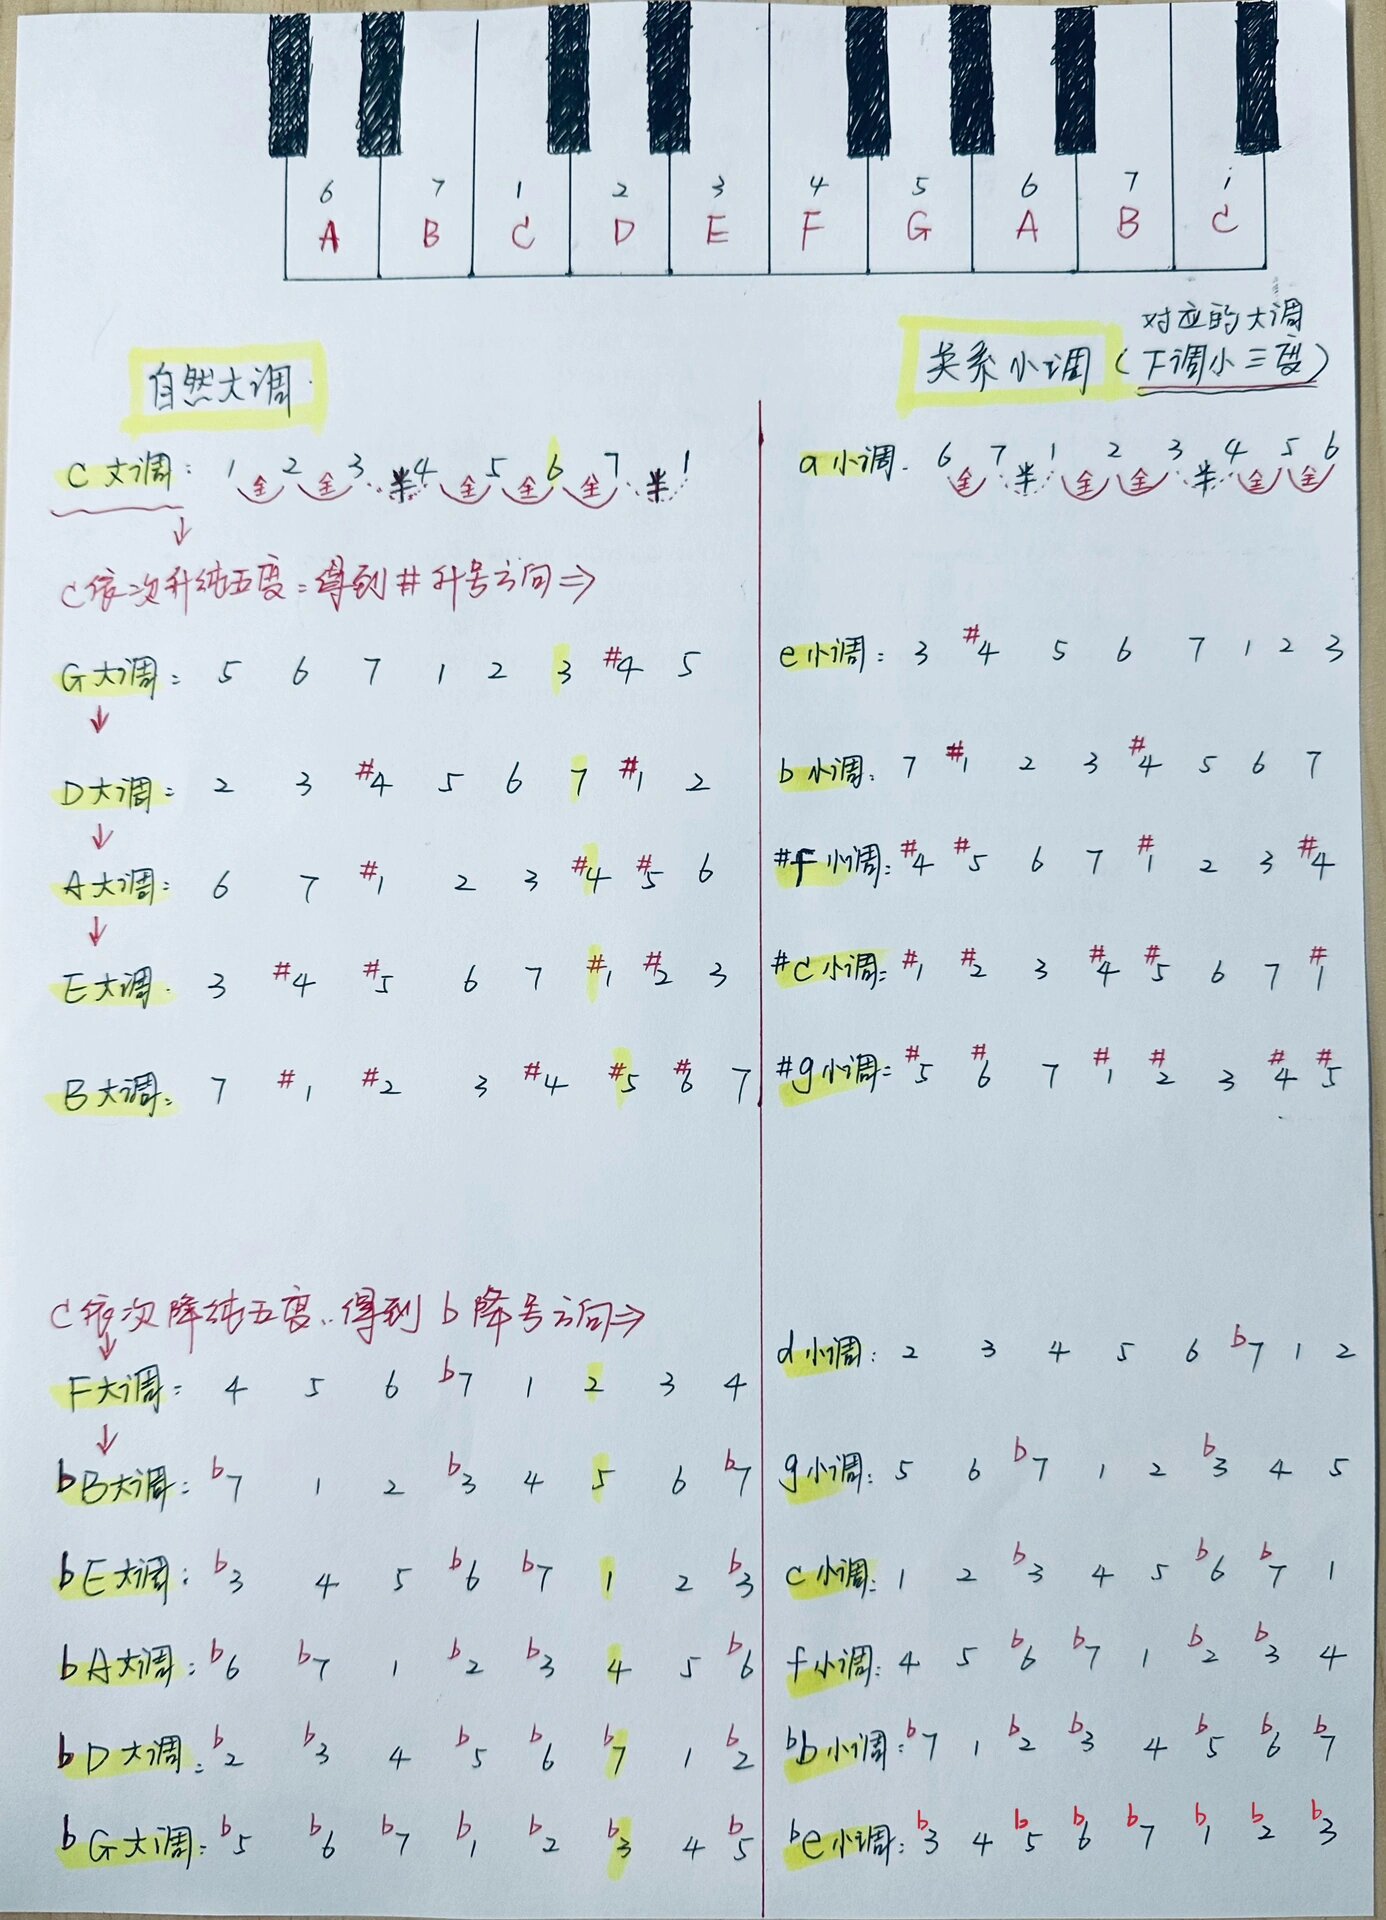 6 7 1 2 3 4 5 6 7 i
A B C D E F G A B C
自然大调
对应的大调
关系小调（下调小三度）
C大调: 1 2 3 4 5 6 7 1
全 全 半 全 全 全 半
a小调. 6 7 1 2 3 4 5 6
全 半 全 全 半 全 全
C依次升纯五度:得到#升号方向⇒
G大调: 5 6 7 1 2 3 #4 5
e小调: 3 #4 5 6 7 1 2 3
D大调: 2 3 #4 5 6 7 #1 2
b小调: 7 #1 2 3 #4 5 6 7
A大调: 6 7 #1 2 3 #4 #5 6
#f小调: #4 #5 6 7 #1 2 3 #4
E大调. 3 #4 #5 6 7 #1 #2 3
#c小调: #1 #2 3 #4 #5 6 7 #1
B大调: 7 #1 #2 3 #4 #5 #6 7
#g小调: #5 #6 7 #1 #2 3 #4 #5
C依次降纯五度..得到b降号方向⇒
F大调: 4 5 6 b7 1 2 3 4
d小调: 2 3 4 5 6 b7 1 2
bB大调: b7 1 2 b3 4 5 6 b7
g小调: 5 6 b7 1 2 b3 4 5
bE大调: b3 4 5 b6 b7 1 2 b3
c小调: 1 2 b3 4 5 b6 b7 1
bA大调: b6 b7 1 b2 b3 4 5 b6
f小调: 4 5 b6 b7 1 b2 b3 4
bD大调: b2 b3 4 b5 b6 b7 1 b2
bb小调: b7 1 b2 b3 4 b5 b6 b7
bG大调: b5 b6 b7 b1 b2 b3 4 b5
be小调: b3 4 b5 b6 b7 b1 b2 b3